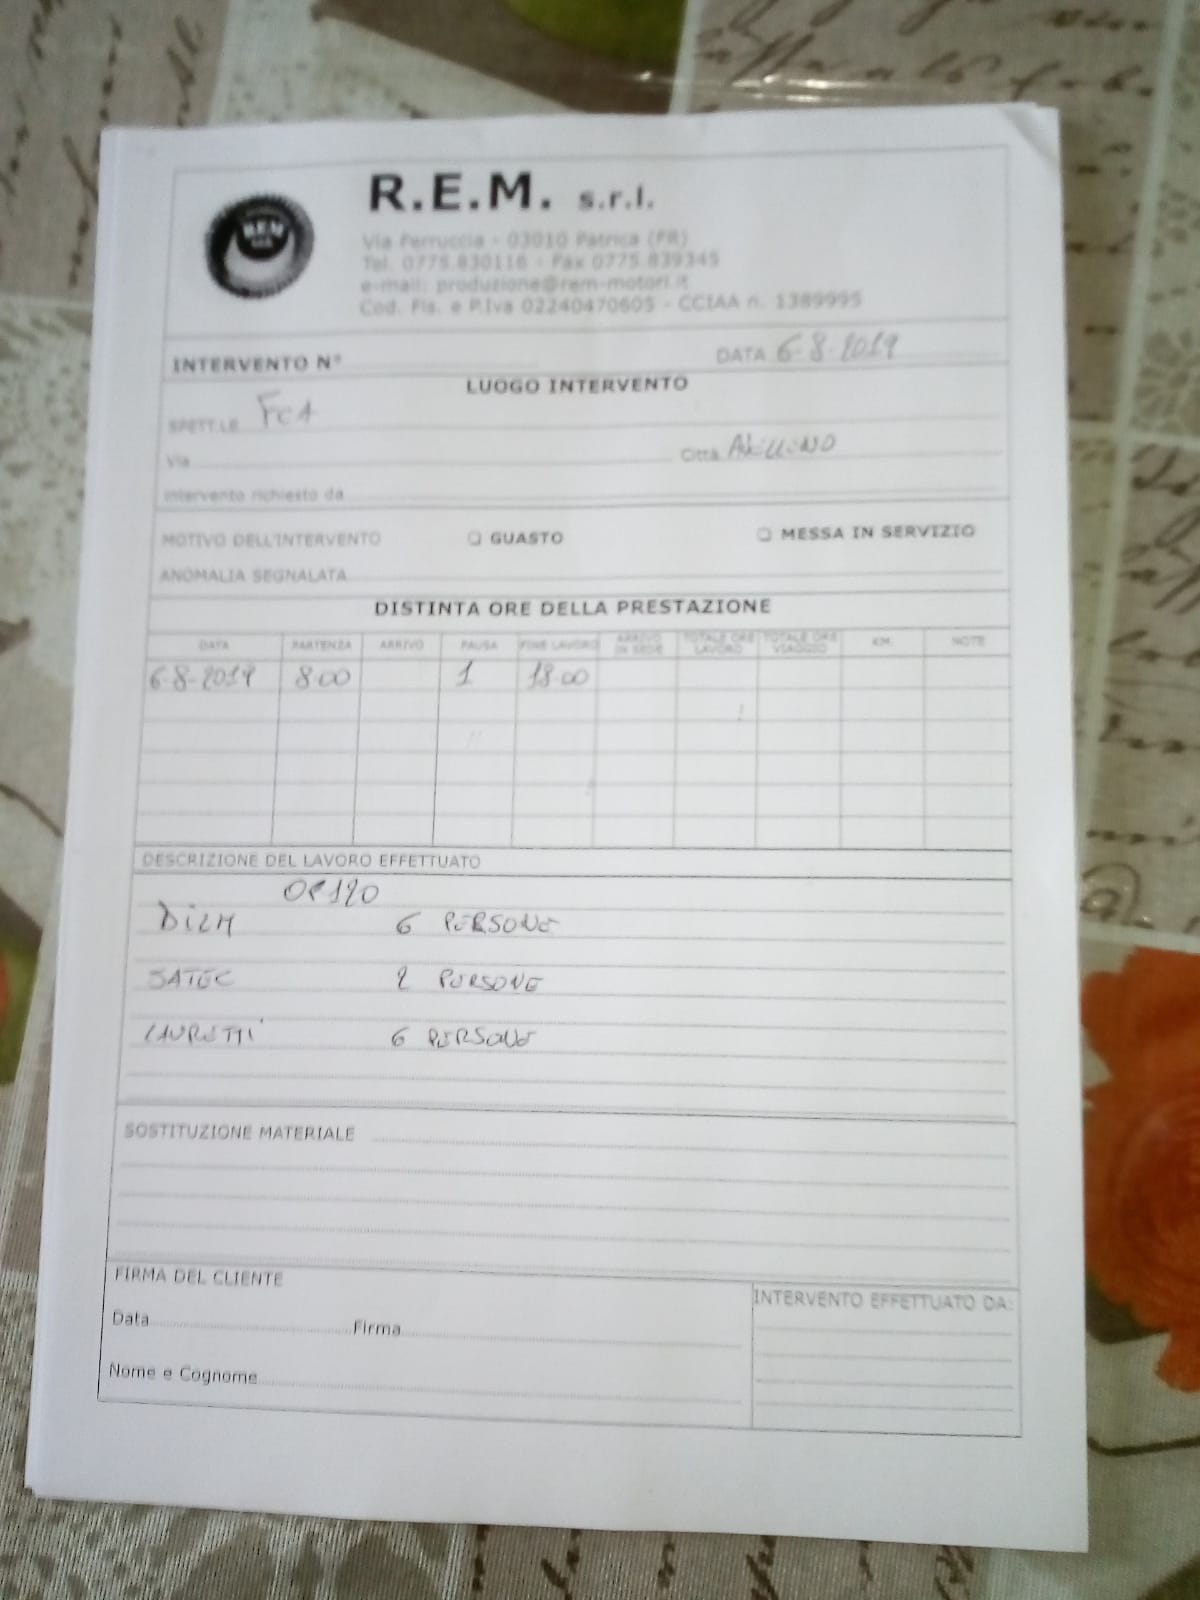 R.E.M. s.r.l.
REM
Via Ferruccia - 03010 Patrica (FR)
Tel. 0775.830116 - Fax 0775.839345
e-mail: produzione@rem-motori.it
Cod. Fis. e P.Iva 02240470605 - CCIAA n. 1389995
INTERVENTO N° DATA 6-8-2019
LUOGO INTERVENTO
SPETT.LE FCA
Via Città AVELLINO
Intervento richiesto da
MOTIVO DELL'INTERVENTO GUASTO MESSA IN SERVIZIO
ANOMALIA SEGNALATA
DISTINTA ORE DELLA PRESTAZIONE
DATA PARTENZA ARRIVO PAUSA FINE LAVORO ARRIVO IN SEDE TOTALE ORE LAVORO TOTALE ORE VIAGGIO KM. NOTE
6-8-2019 8.00 1 18.00
DESCRIZIONE DEL LAVORO EFFETTUATO
OP120
6 PERSONE
SATEC 2 PERSONE
LAURETTI 6 PERSONE
SOSTITUZIONE MATERIALE
FIRMA DEL CLIENTE
INTERVENTO EFFETTUATO DA:
Data Firma
Nome e Cognome